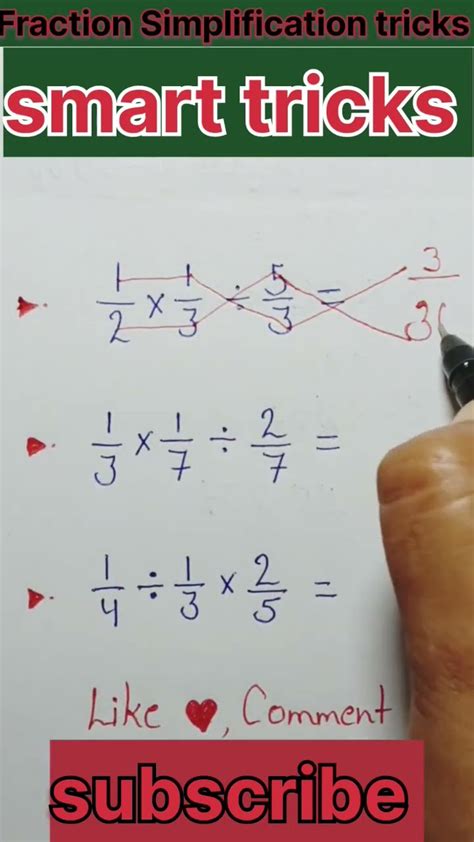 Fraction Simplification tricks
smart tricks
1/2 × 1/3 ÷ 5/3 = 3/30
1/3 × 1/7 ÷ 2/7 =
1/4 ÷ 1/3 × 2/5 =
Like ♥, Comment
subscribe